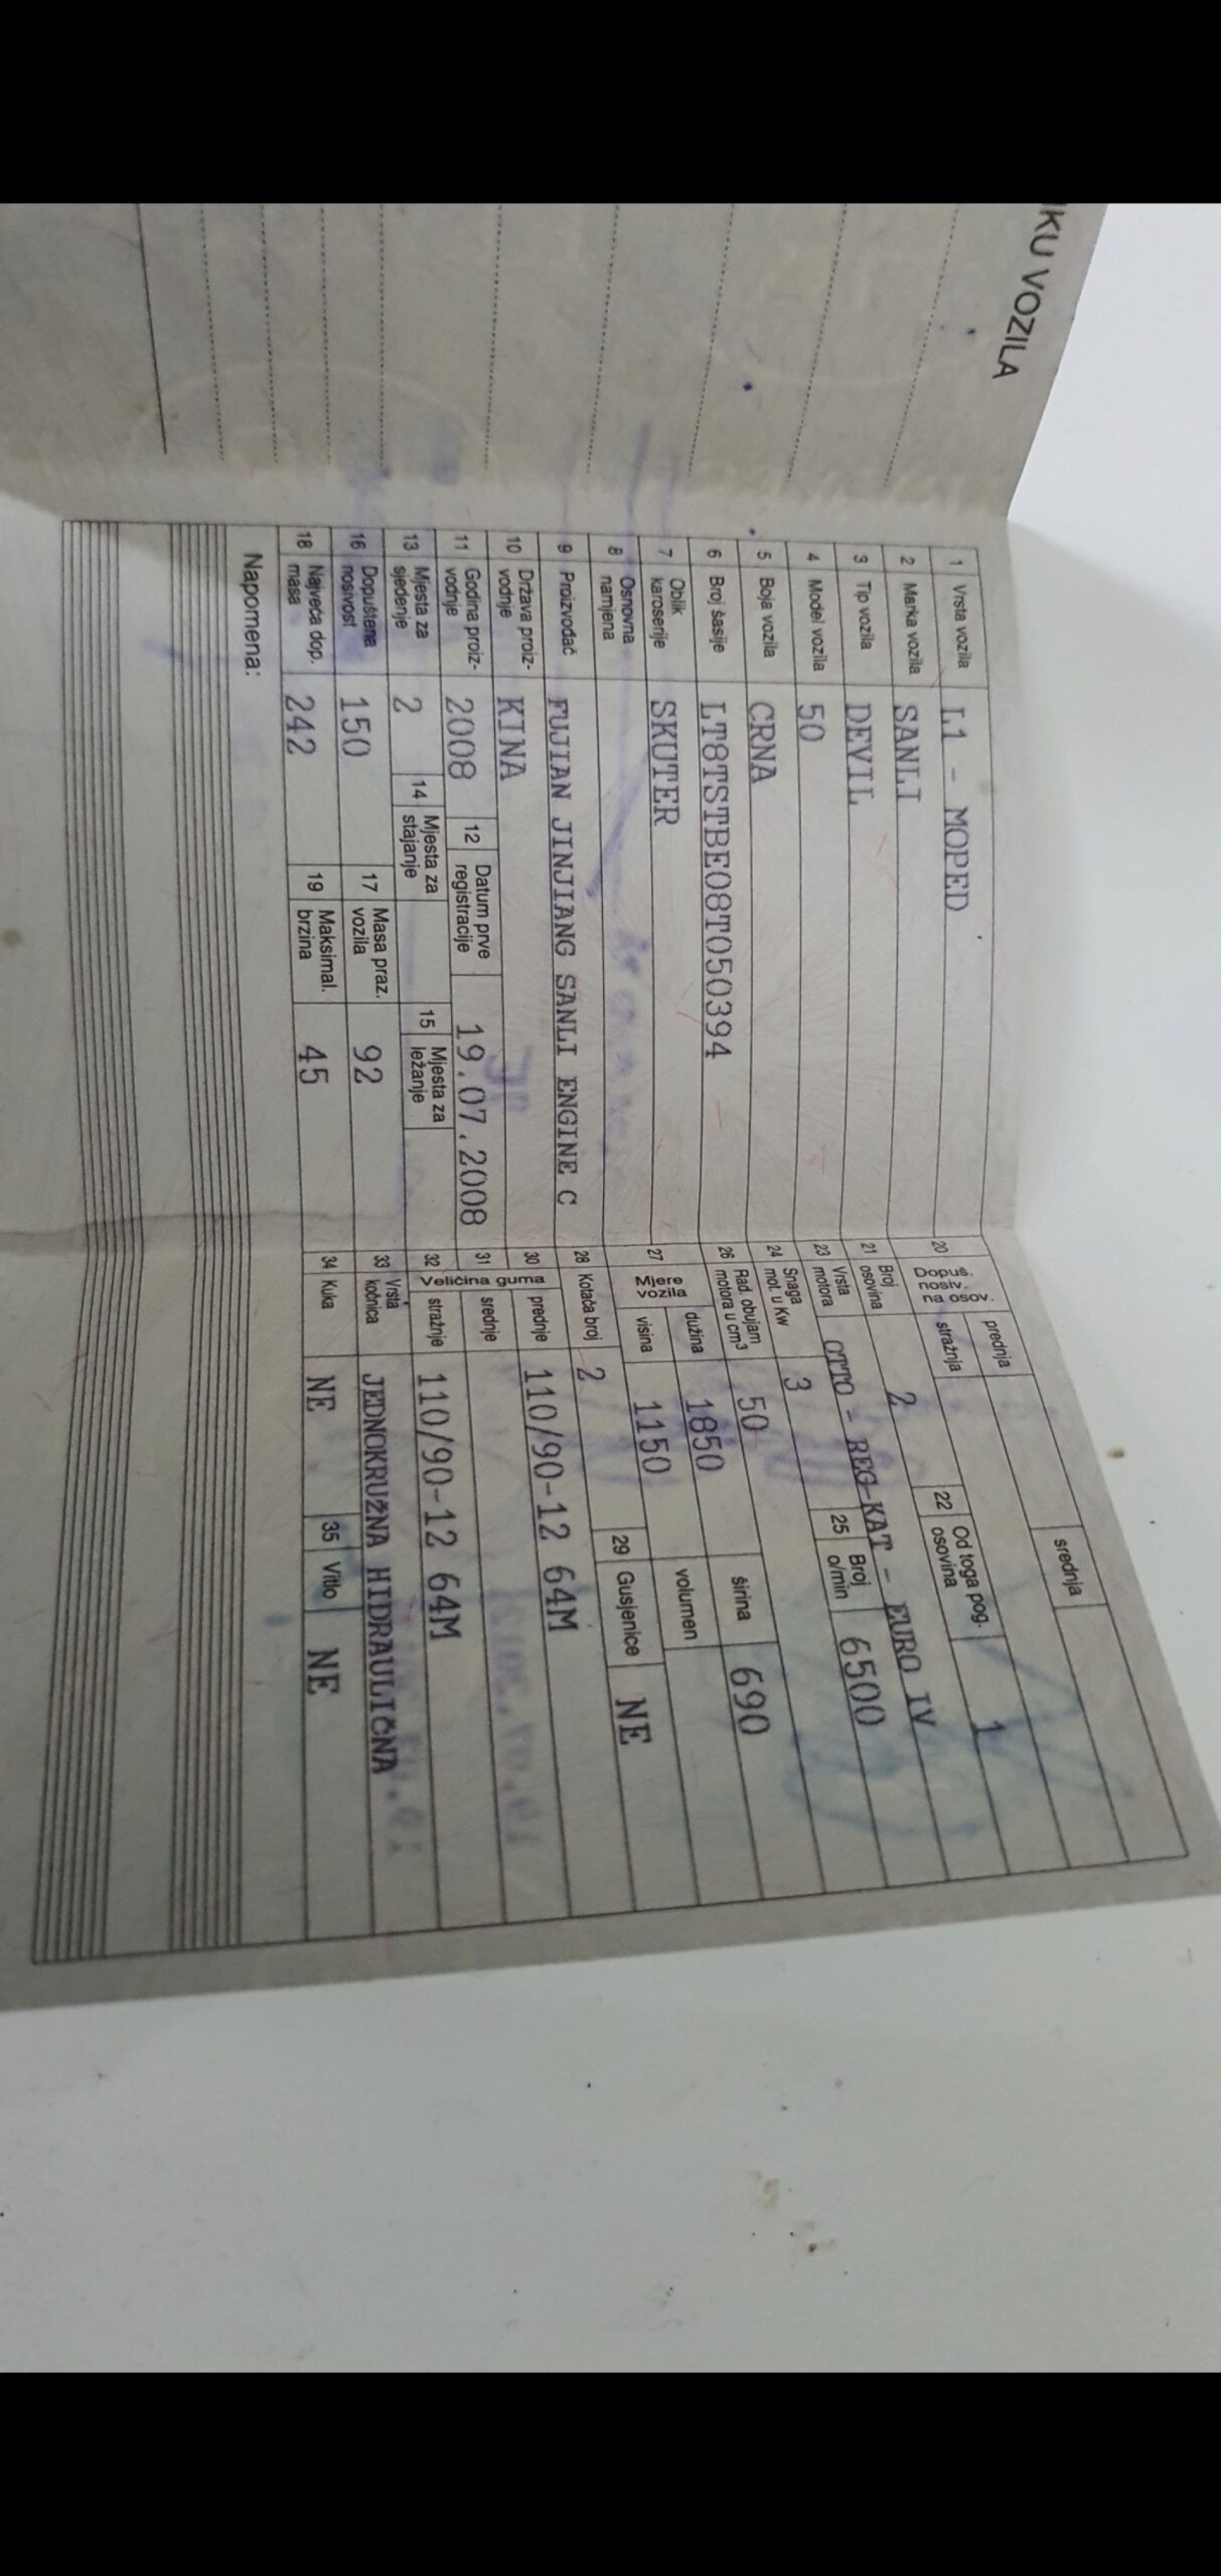 IKU VOZILA
1 Vrsta vozila L1 - MOPED
2 Marka vozila SANLI
3 Tip vozila DEVIL
4 Model vozila 50
5 Boja vozila CRNA
6 Broj šasije LT8TSTBE08T050394
7 Oblik karoserije SKUTER
8 Osnovna namjena
9 Proizvođač FUJIAN JINJIANG SANLI ENGINE C
10 Država proiz-vodnje KINA
11 Godina proiz-vodnje 2008 12 Datum prve registracije 19.07.2008
13 Mjesta za sjedenje 2 14 Mjesta za stajanje 15 Mjesta za ležanje
16 Dopuštena nosivost 150 17 Masa praz. vozila 92
18 Najveća dop. masa 242 19 Maksimal. brzina 45
Napomena:
20 Dopuš. nosiv. na osov. prednja srednja
stražnja
21 Broj osovina 2 22 Od toga pog. osovina 1
23 Vrsta motora OTTO - REG-KAT - EURO IV
24 Snaga mot. u Kw 3 25 Broj o/min 6500
26 Rad. obujam motora u cm3 50
27 Mjere vozila dužina 1850 širina 690
visina 1150 volumen
28 Kotača broj 2 29 Gusjenice NE
30 Veličina guma prednje 110/90-12 64M
31 srednje
32 stražnje 110/90-12 64M
33 Vrsta kočnica JEDNOKRUŽNA HIDRAULIČNA
34 Kuka NE 35 Vitlo NE